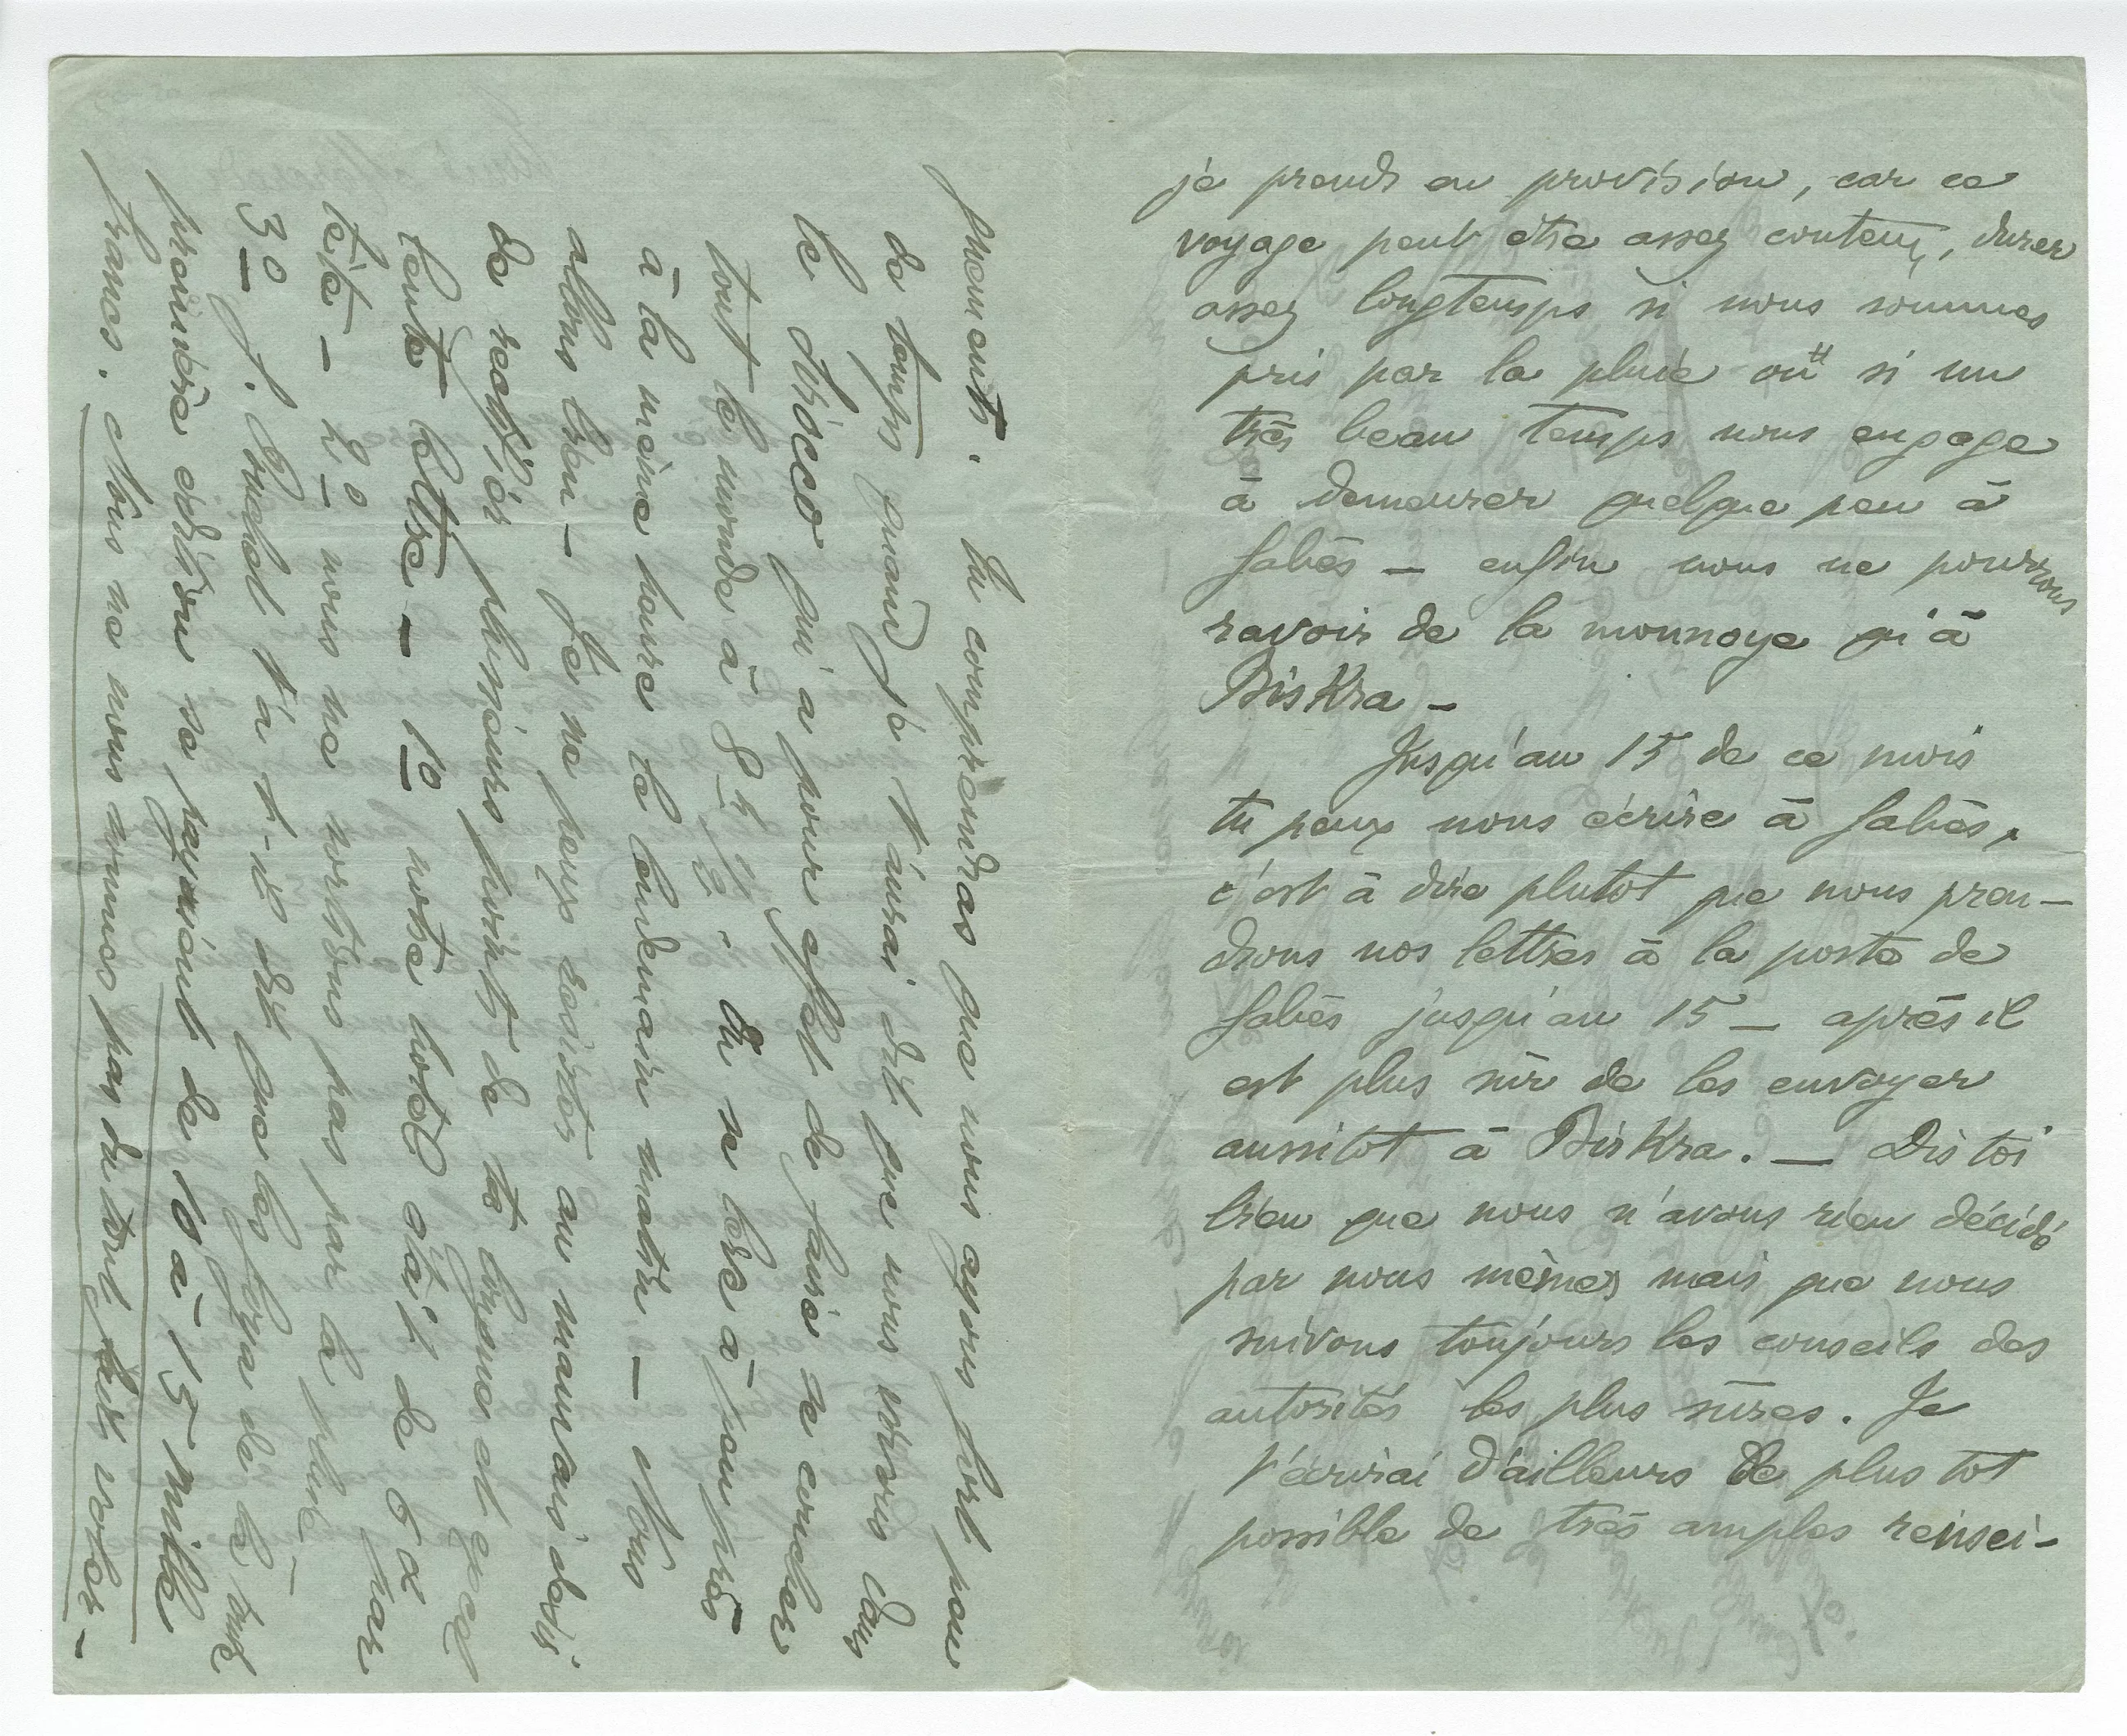 je prends en provision, car ce
voyage peut être assez couteux, durer
assez longtemps si nous sommes
pris par la pluie ou si un
très beau temps nous engage
à demeurer quelque peu à
Gabès — enfin nous ne pourrons
ravoir de la monnoye qu'à
Biskra —
Jusqu'au 15 de ce mois
tu peux nous écrire à Gabès,
c'est à dire plutot que nous pren-
drons nos lettres à la poste de
Gabès jusqu'au 15 — après il
est plus sûr de les envoyer
aussitot à Biskra. — Dis toi
bien que nous n'avons rien décidé
par nous mêmes mais que nous
suivons toujours les conseils des
autorités les plus sûres. Je
t'écrirai d'ailleurs le plus tot
possible de très amples rensei-
gnements. Tu comprendras que nous ayons fort peu
de temps quand je t'aurai dit que nous vivons dans
le Sirocco qui a pour effet de faire se coucher
tout le monde à 8 h 1/2. On se lève à peu près
à la même heure le lendemain matin — Nous
allons bien — Je ne peux résister au mauvais désir
de rectifier plusieurs points de ta longue et
lente lettre — 1o notre hotel était de 6 f par
tête — 2o nous ne sortions pas par la pluie —
3o J. Bruchet t'a t-il dit que les foza de la
première édition se payaient de 10 à 15 mille
francs. Nous ne nous sommes pas du tout fait voler —